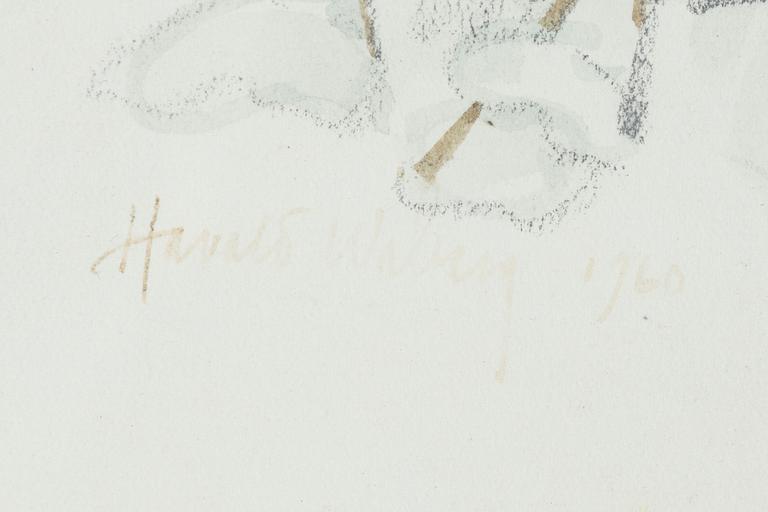 Harald Wiberg 1960